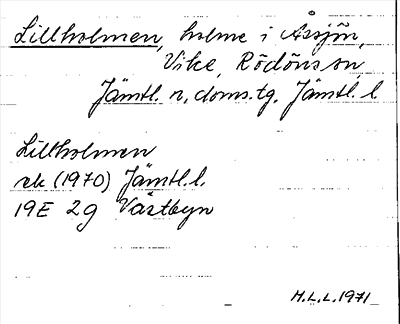 Lillholmen, holme i Åssjön,
Vike, Rödöns sn,
Jämtl. n. doms.tg. Jämtl. l
Lillholmen
ek (1970) Jämtl. l.
19E 2g Västbyn
H.L.L. 1971